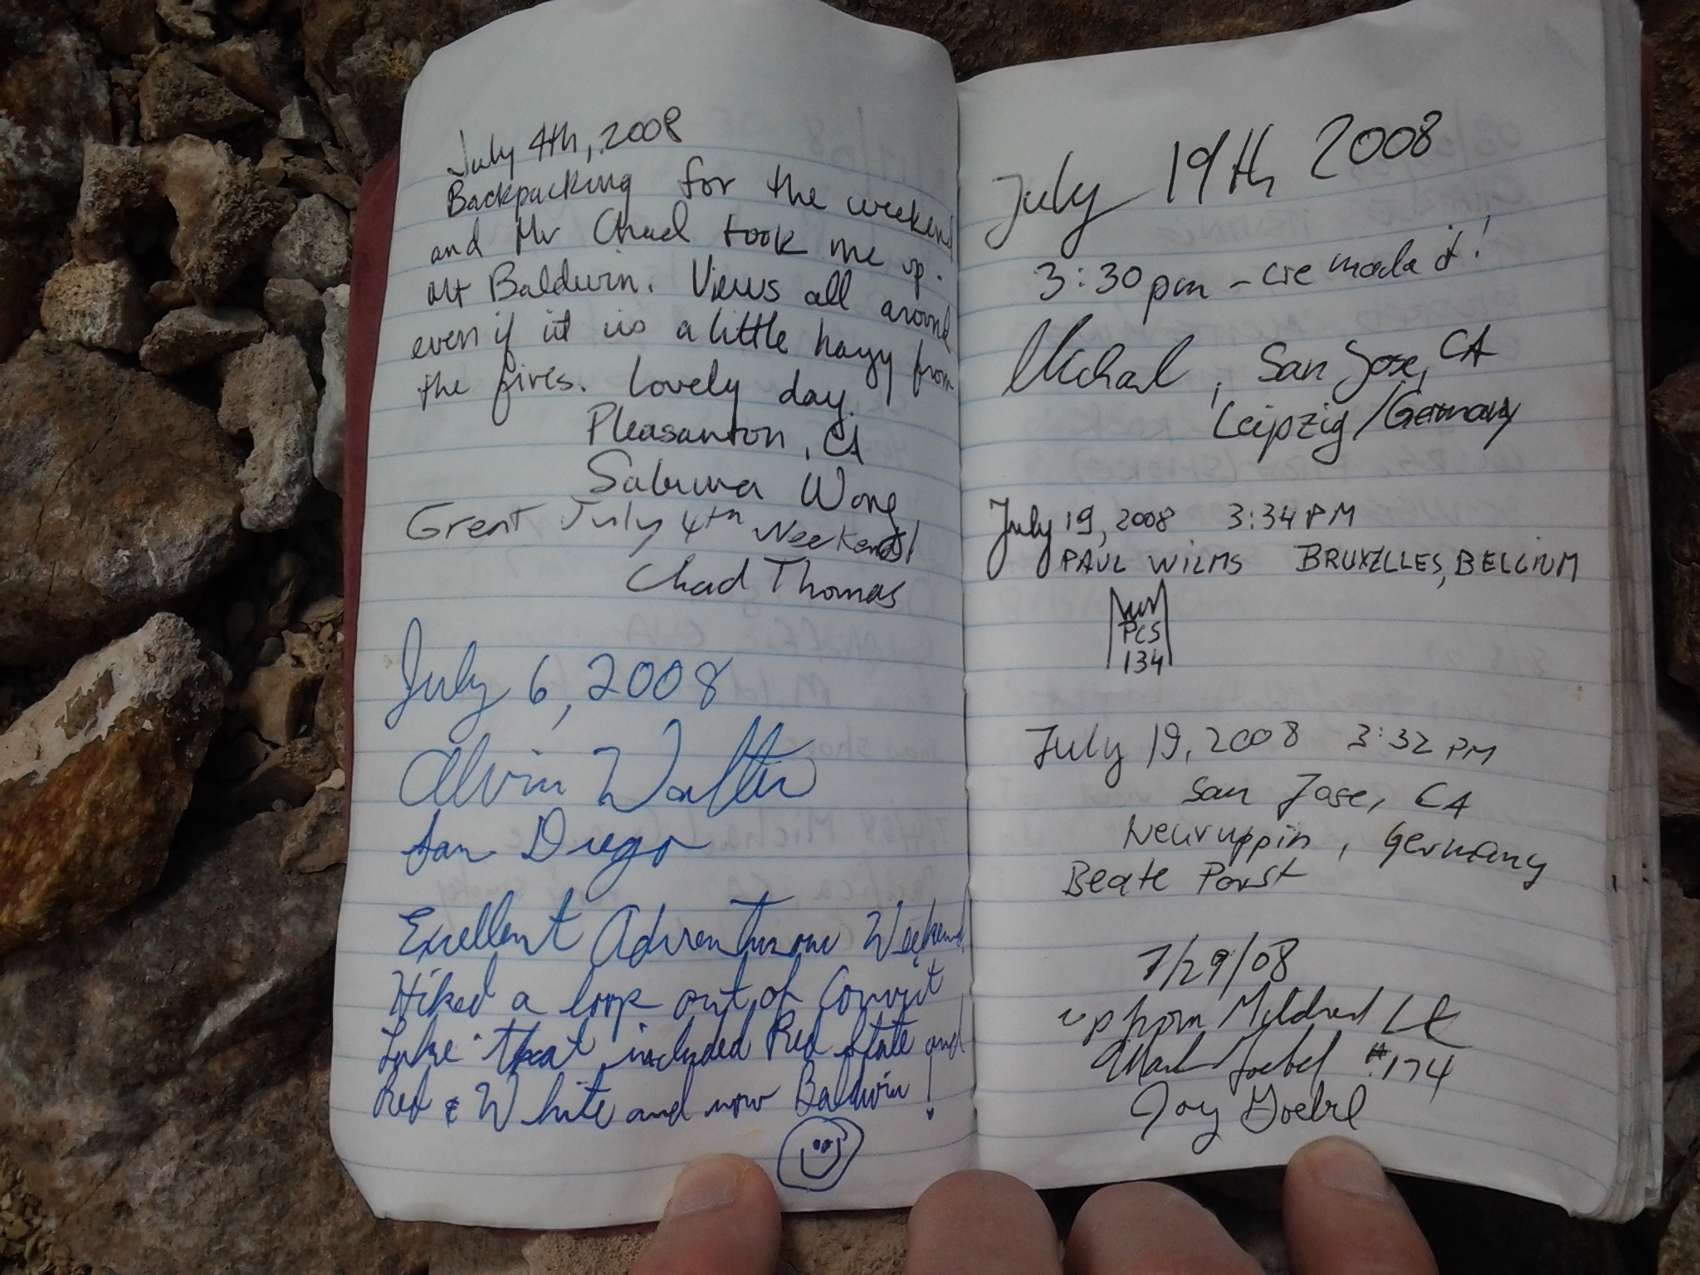 July 4th, 2008
Backpacking for the weekend
and Mr Chad took me up
Mt Baldwin. Views all around
even if it is a little hazy from
the fires. Lovely day.
Pleasanton, CA
Sabrina Wong
Great July 4th Weekend!
Chad Thomas
July 6, 2008
Alvin Walter
San Diego
Excellent Adventurous Weekend
Hiked a loop out of Convict
Lake that included Red Slate and
Red & White and now Baldwin!
July 19th 2008
3:30pm - we made it!
Michael, San Jose, CA
Leipzig/Germany
July 19, 2008 3:34 PM
PAUL WILMS BRUXELLES, BELGIUM
PCS
134
July 19, 2008 3:32 PM
San Jose, CA
Neuruppin, Germany
Beate Porst
7/29/08
up from Mildred Lk
Mark Goebel #174
Joy Goebel